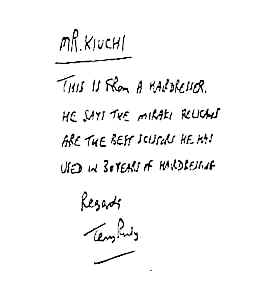 MR. KIUCHI
THIS IS FROM A HAIRDRESSER.
HE SAYS THE MIRAKI RELICANS
ARE THE BEST SCISSORS HE HAS
USED IN 30 YEARS OF HAIRDRESSING
Regards
Terry